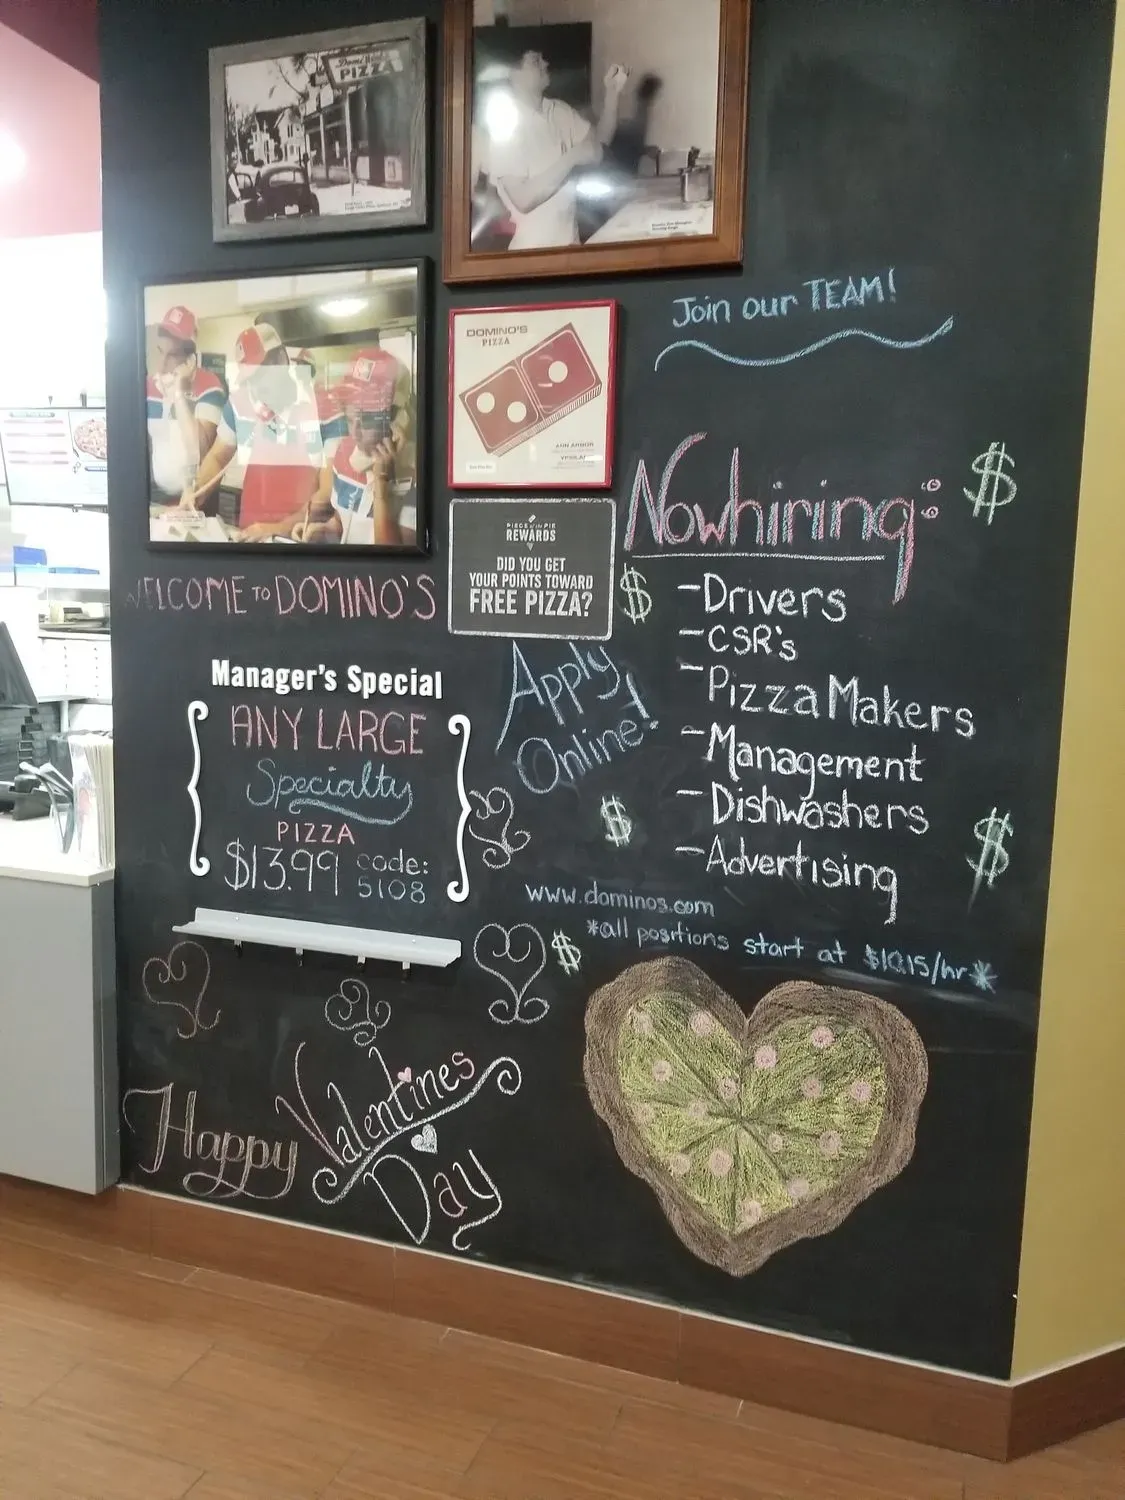 PIZZA
DOMINO'S
PIZZA
ANN ARBOR
Join our TEAM!
Now hiring:
$
PIECE OF THE PIE
REWARDS
DID YOU GET
YOUR POINTS TOWARD
FREE PIZZA?
$
-Drivers
-CSR's
-Pizza Makers
-Management
-Dishwashers
-Advertising
$
$
WELCOME TO DOMINO'S
Manager's Special
ANY LARGE
Specialty
PIZZA
$13.99 code:
5108
Apply
Online!
www.dominos.com
*all positions start at $10.15/hr*
$
Happy
Valentines
Day